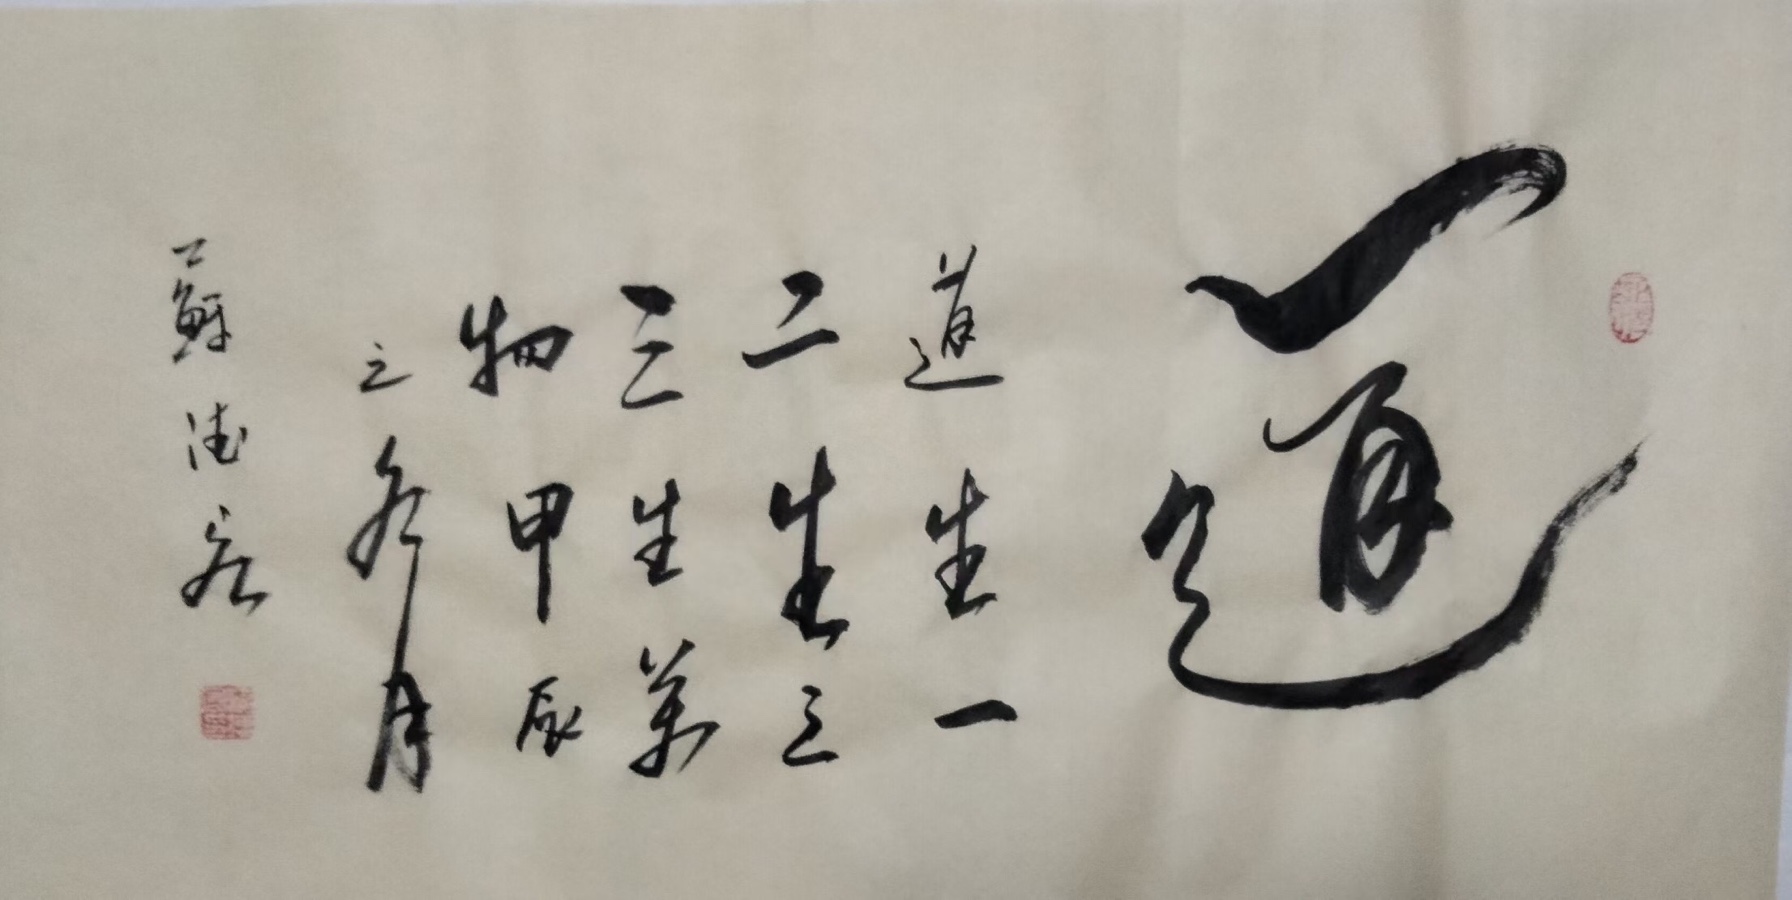 道
道生一
二生三
三生萬
物甲辰
之冬月
蘇德